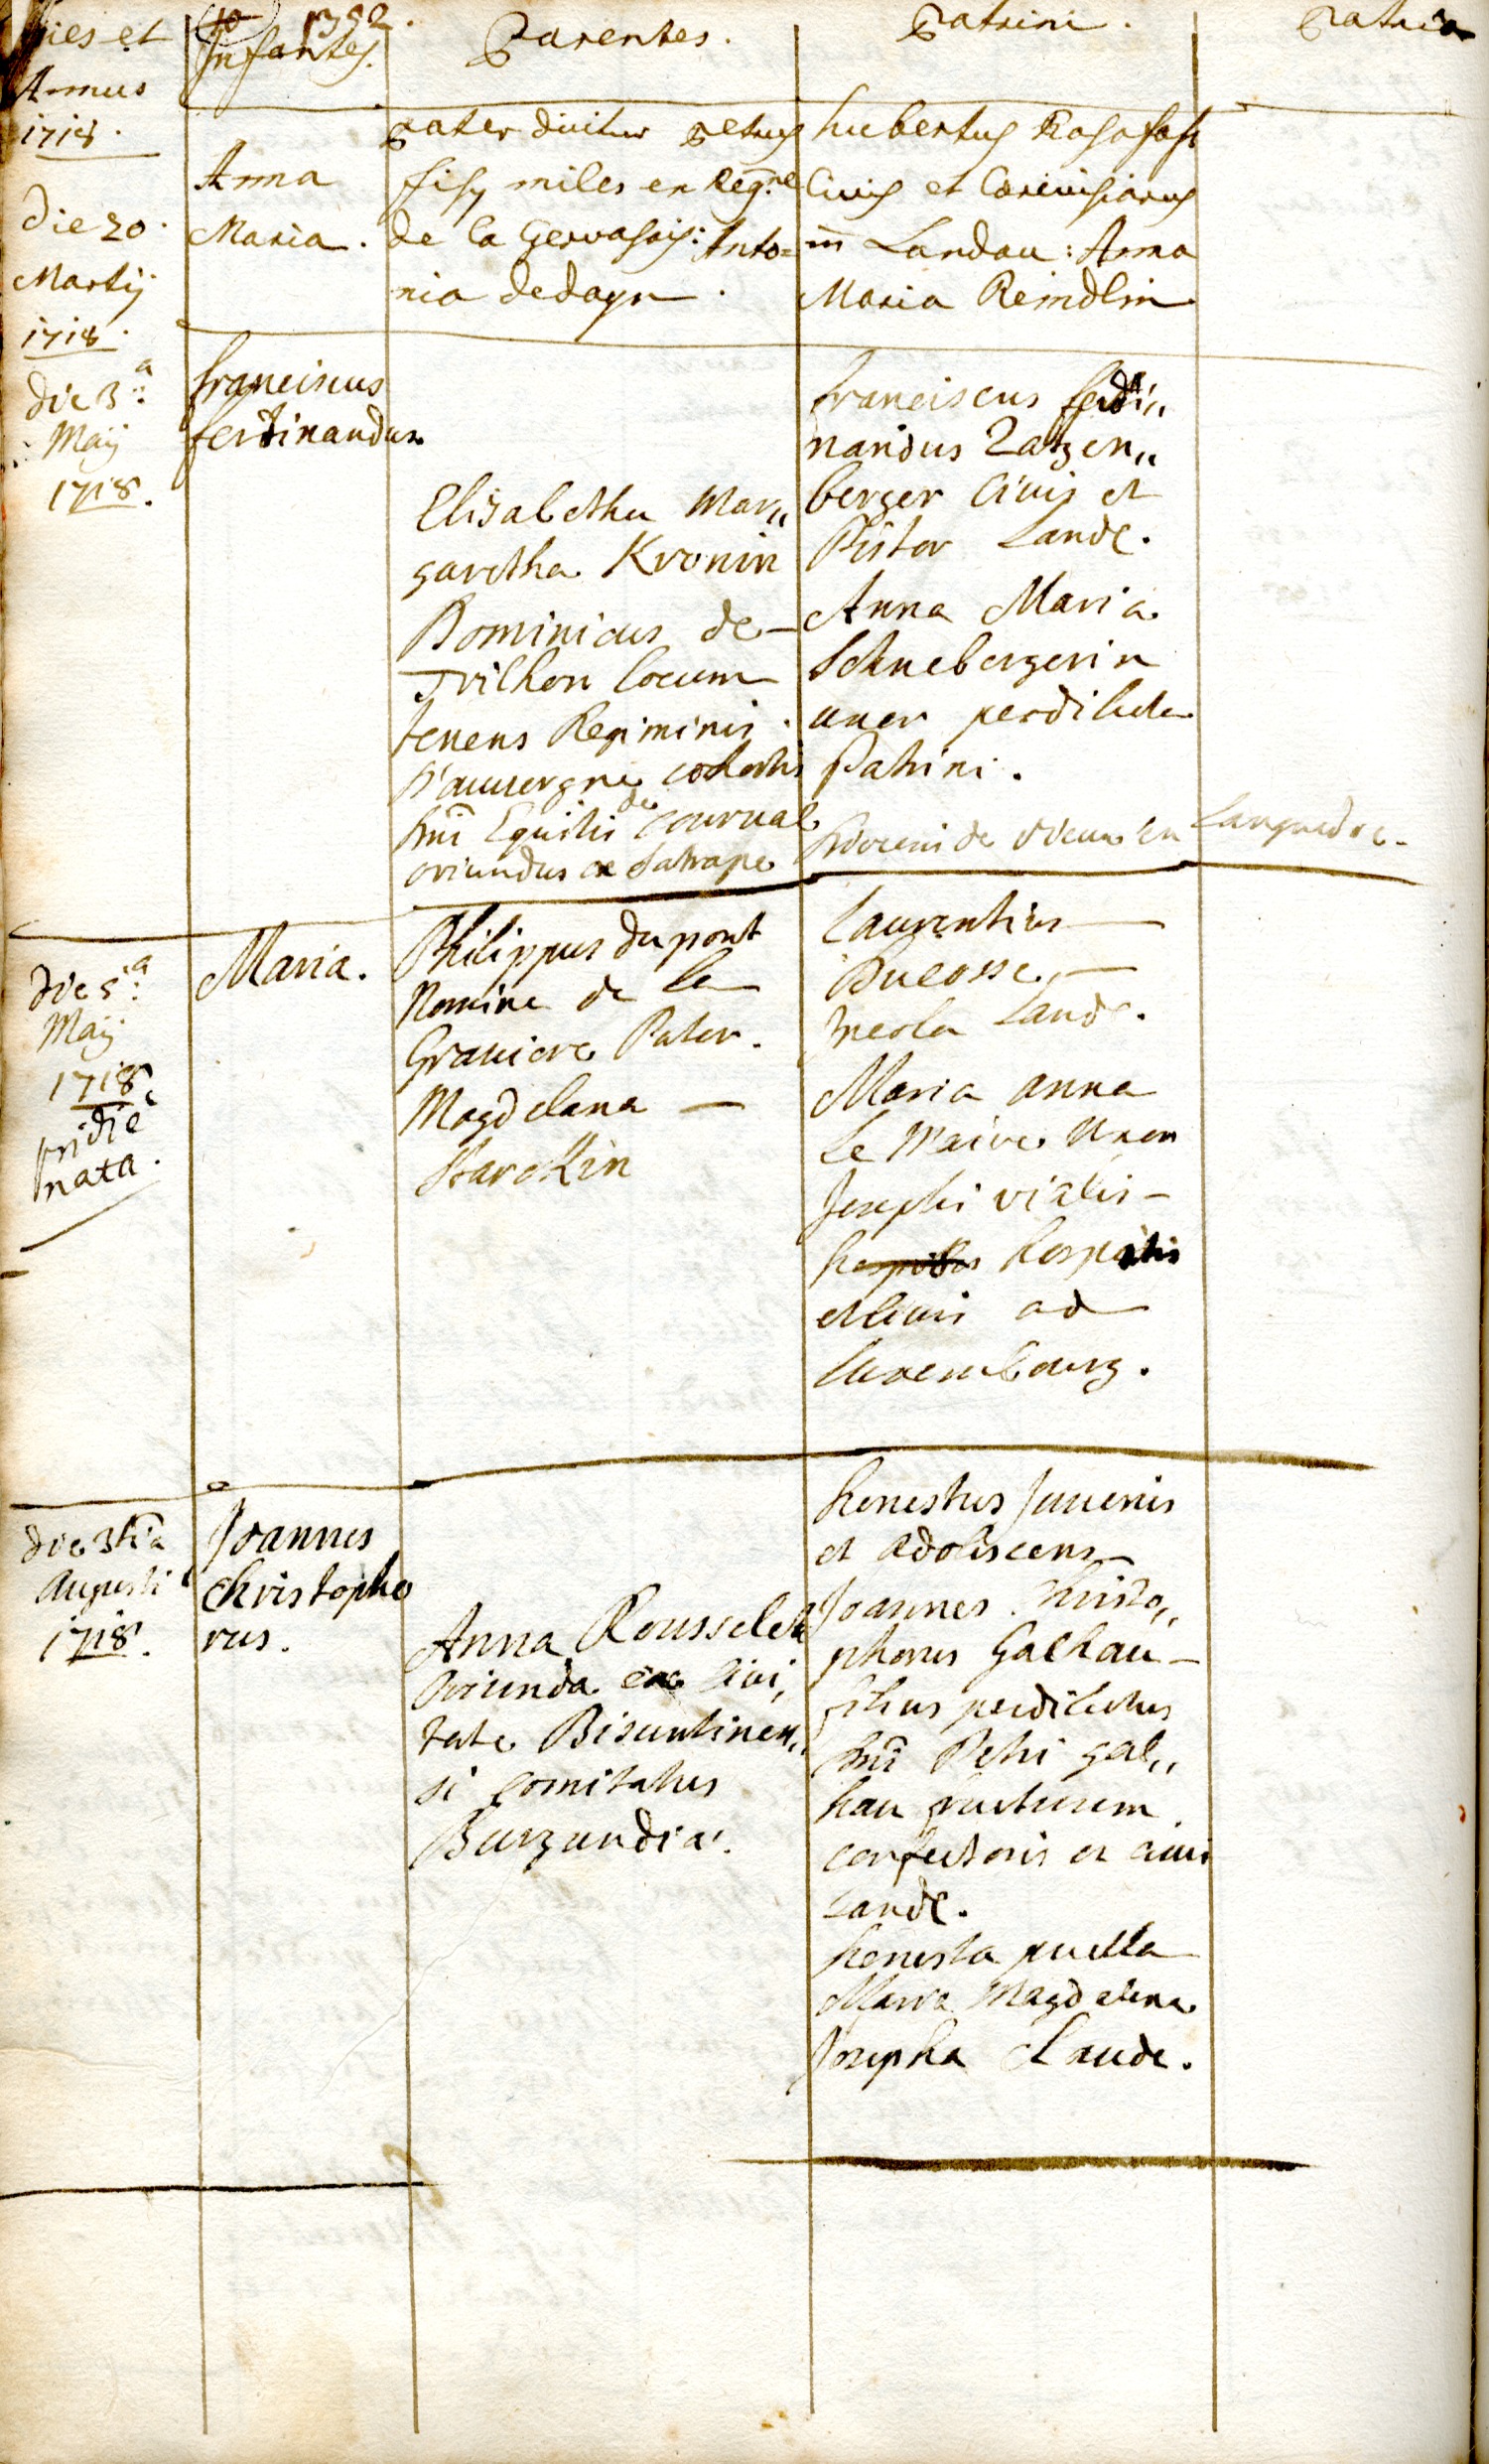 1352.
Dies et
Annus
1718.
Infantes.
Parentes.
Patrini.
Patria
die 20.
Martij
1718.
Anna
Maria.
Pater dicitur Petrus
miles en Reg:ne
de la Gervasais: Anto=
nia dedayn.
hubertus
Civis et
in Landau: Anna
Maria Reindlin
die 3:a
Maij
1718.
franciscus
ferdinandus
Elisabetha Mar„
garetha Kronin
Dominicus de-
Trilhon locum
tenens Regiminis
D'auuergne cohortis
Dni Equitis de Courval
oriundus ex
franciscus ferdi„
nandus Zatzen„
berger Civis et
Pistor Land:
Anna Maria
Schnebergerin
uxor perdilecta
Patrini.
en Languedoc.
die 5:a
Maij
1718.
pridie
nata.
Maria.
Philippus du pont
Nomine de la
Graviere Pater.
Magdelana —
Starckin
Laurentius —
Ducosse —
Incola Land:
Maria anna
le Maire Uxor
Josephi vialis -
hospitis
et Civis ad
Luxembourg.
die 3tia
Augusti
1718.
Joannes
Christopho
rus.
Anna Rousselet
Oriunda ex Civi„
tate Bisuntinen„
si Comitatus
Burgundiae.
honestus Juvenis
et Adolescens
Joannes Christo„
phorus Galhau -
filius perdilectus
Dni Petri gal„
hau
confectoris et civis
Land:
honesta puella
Maria Magdalena
Josepha Claude.